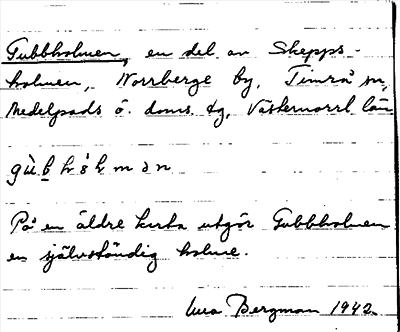 Gubbholmen, en del av Skepps-
holmen, Norrberge by, Timrå sn,
Medelpads ö. doms. tg, Västernorrl. län
gùb̲hòlmən
På en äldre karta utgör Gubbholmen
en självständig holme.
Bergman 1942.